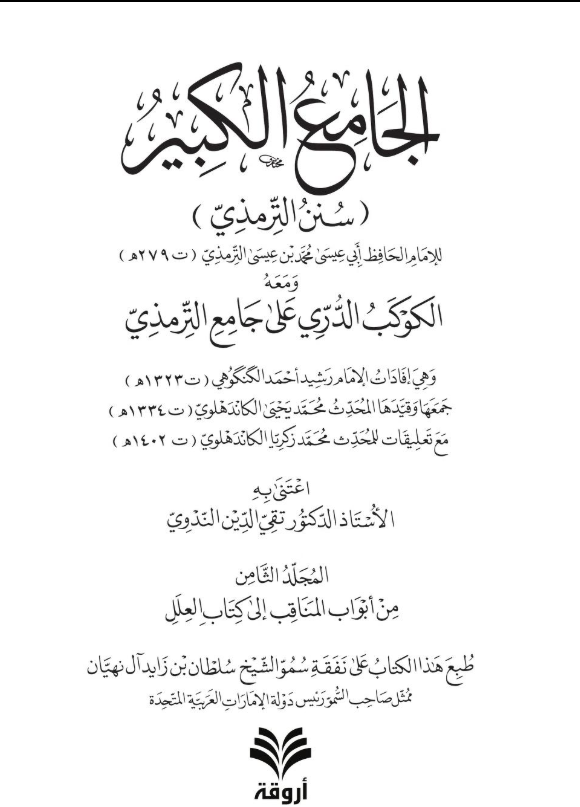 الجَامِعُ الكَبِيرُ
( سُنَنُ التِّرمذِيّ )
للإمَامِ الحَافِظ أَبِي عِيسَىٰ مُحَمَّد بْن عِيسَىٰ التِّرمذِيّ ( ت ٢٧٩ه )
وَمَعَهُ
الكَوْكَبُ الدُّرِّي عَلَىٰ جَامِعِ التِّرمذِيّ
وَهِيَ إفَادَاتُ الإمَام رَشِيد أحْمَد الكَنكَوهِي ( ت ١٣٢٣ه )
جَمَعَهَا وَقَيَّدَهَا المُحَدِّثُ مُحَمَّد يَحْيَىٰ الكَانْدَهْلَوِيّ ( ت ١٣٣٤ه )
مَعَ تَعلِيقَات للمُحَدِّث مُحَمَّد زكرِيَّا الكَانْدَهْلَوِيّ ( ت ١٤٠٢ه )
اعْتَنَىٰ بِهِ
الأُسْتَاذ الدّكتُور تَقِيّ الدِّيْن النَّدْوِيّ
المُجَلَّدُ الثَّامِن
مِنْ أبْوَاب المَنَاقِب إلىٰ كِتَابِ العِلَلِ
طُبِعَ هَذا الكتابُ عَلىٰ نَفَقَةِ سُمُوّ الشَّيْخ سُلطَان بْن زَايِد آل نهيَان
ممُثّل صَاحِب السُّموّ رَئيس دَوْلة الإمَارَاتِ العَرَبيَّة المتّحِدَة
أروقة